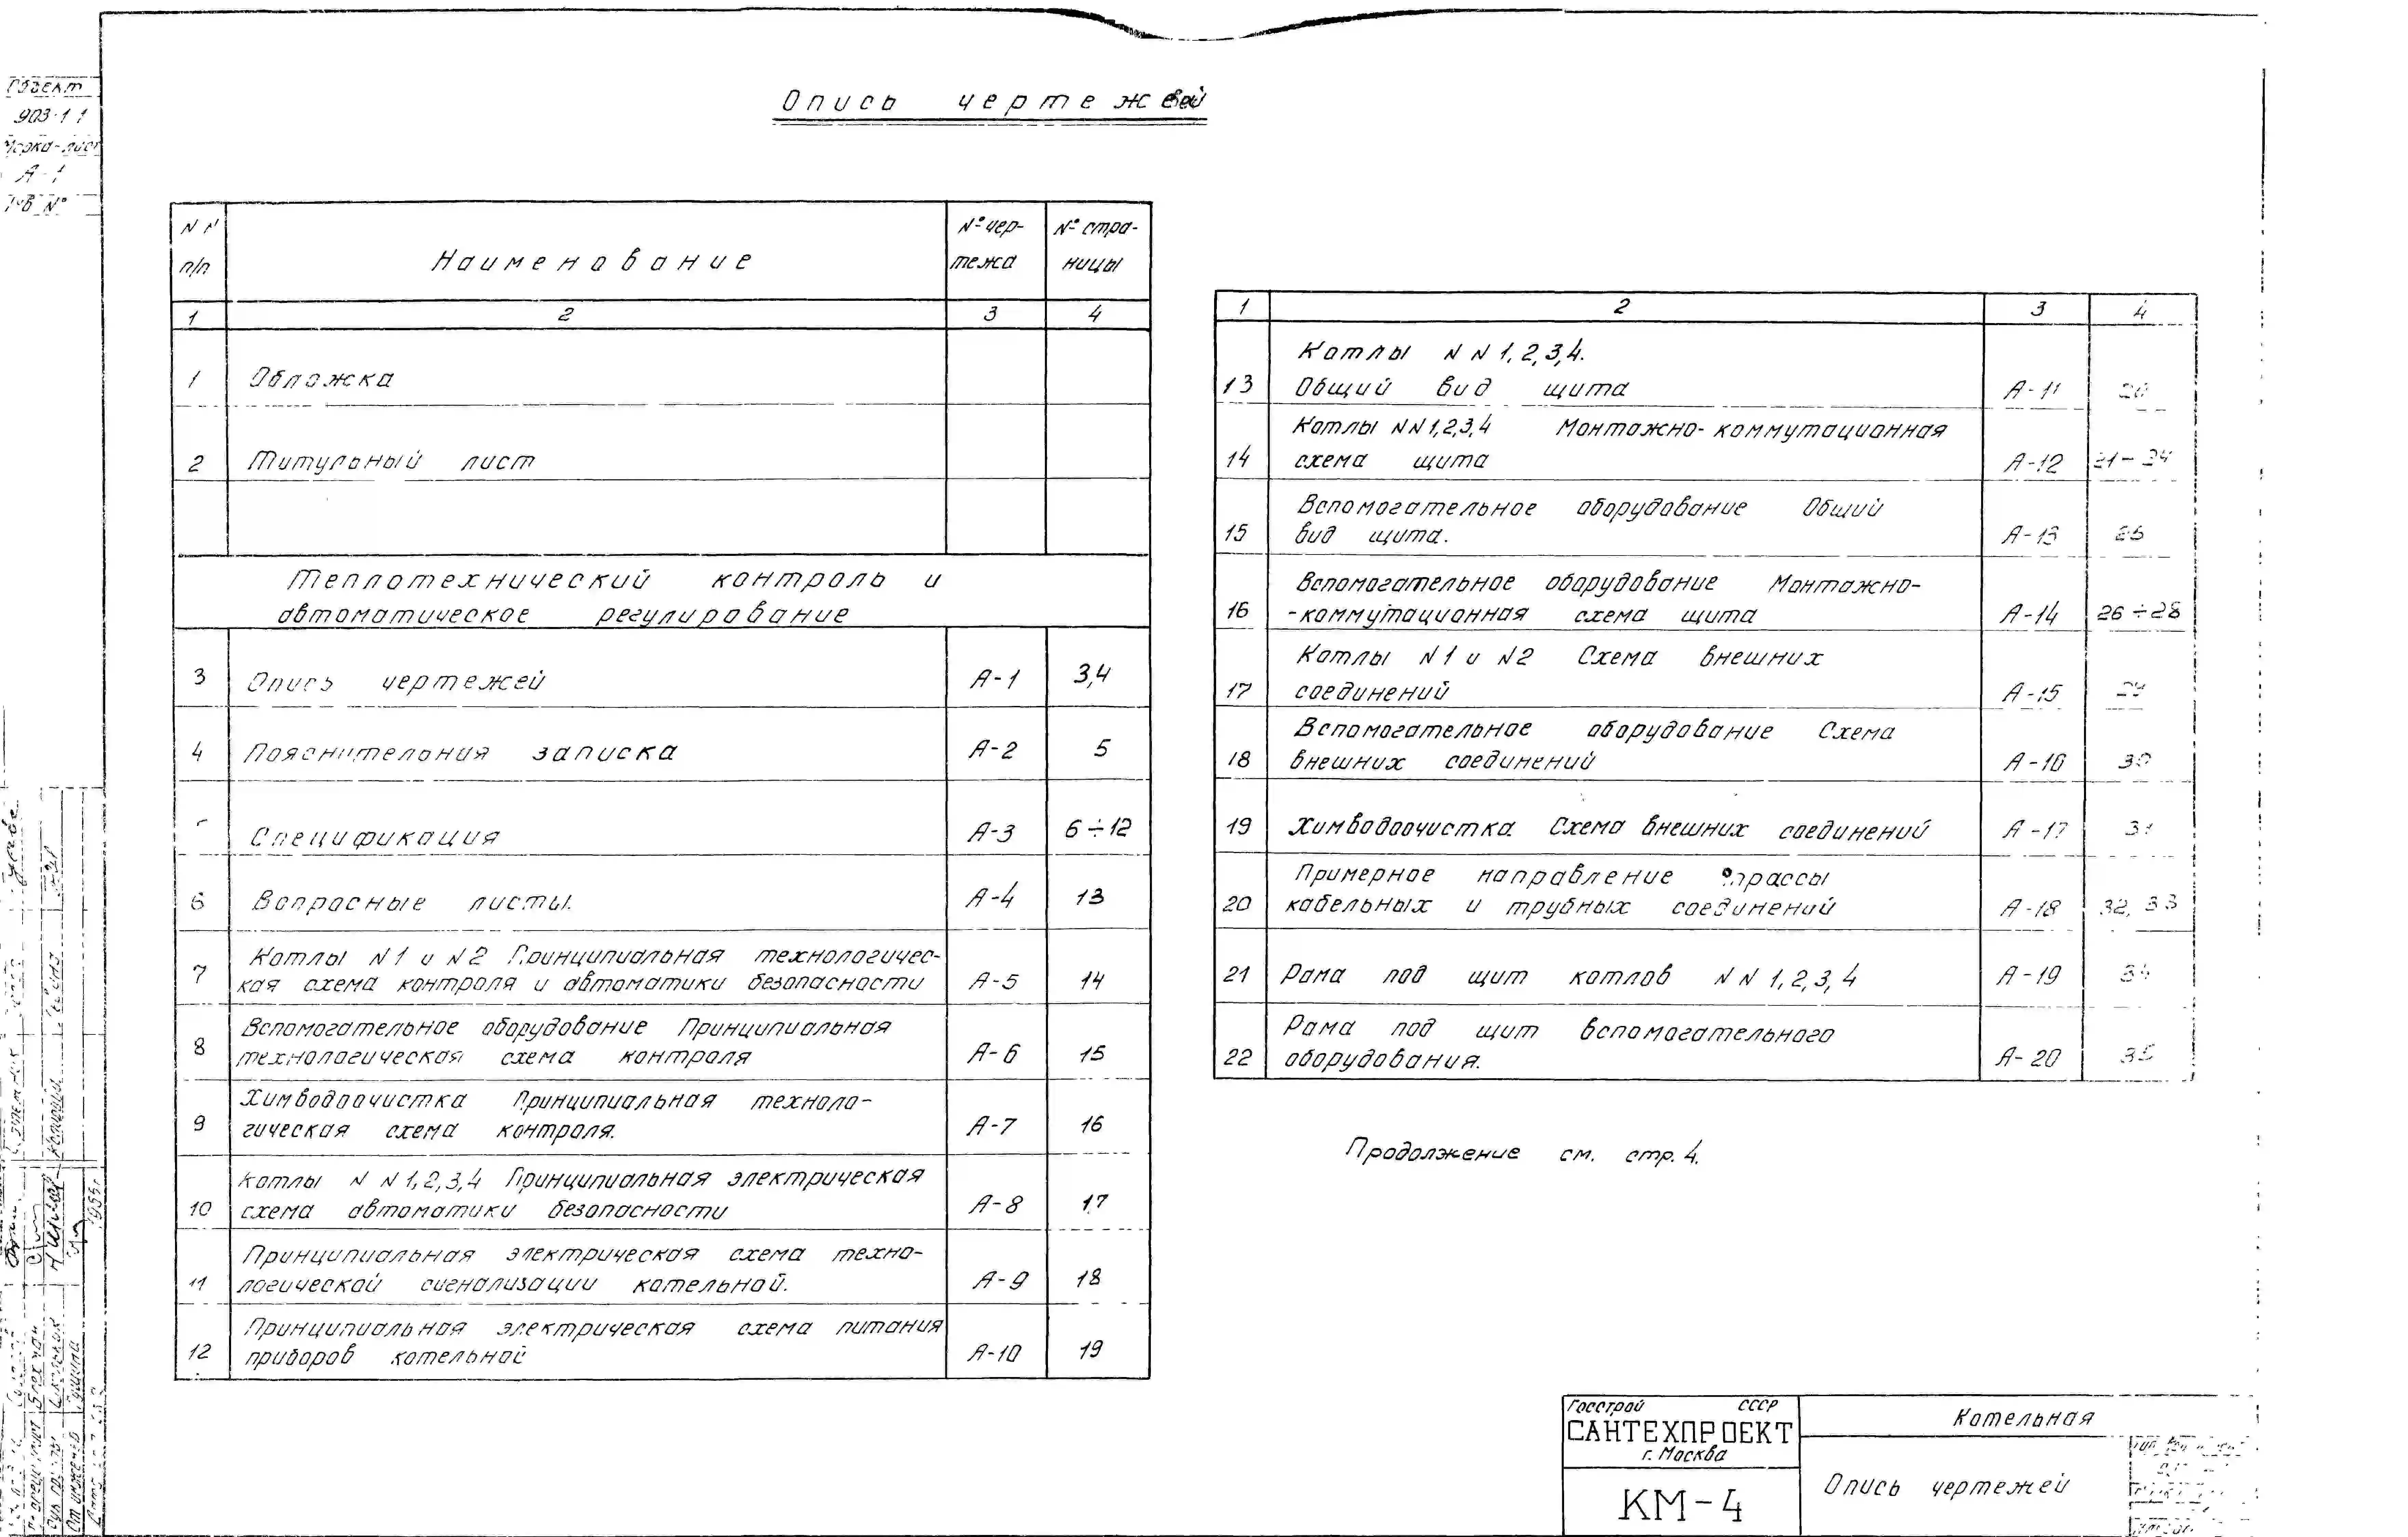 Опись чертежей
Объект
903-1-1
Марка-лист
А-1
Инв №
NN п/п
Наименование
№ чер-
тежа
№ стра-
ницы
1 2 3 4
1 Обложка
2 Титульный лист
Теплотехнический контроль и
автоматическое регулирование
3 Опись чертежей А-1 3,4
4 Пояснительная записка А-2 5
Спецификация А-3 6÷12
6 Вопросные листы. А-4 13
Котлы N1 и N2 Принципиальная технологичес-
7 кая схема контроля и автоматики безопасности А-5 14
Вспомогательное оборудование Принципиальная
8 технологическая схема контроля А-6 15
Химводоочистка Принципиальная техноло-
9 гическая схема контроля. А-7 16
Котлы NN 1,2,3,4 Принципиальная электрическая
10 схема автоматики безопасности А-8 17
Принципиальная электрическая схема техно-
11 логической сигнализации котельной. А-9 18
Принципиальная электрическая схема питания
12 приборов котельной А-10 19
1 2 3 4
Котлы NN 1,2,3,4.
13 Общий вид щита А-11 20
Котлы NN1,2,3,4 Монтажно-коммутационная
14 схема щита А-12 21-24
Вспомогательное оборудование Общий
15 вид щита. А-13 25
Вспомогательное оборудование Монтажно-
16 -коммутационная схема щита А-14 26÷28
Котлы N1 и N2 Схема внешних
17 соединений А-15
Вспомогательное оборудование Схема
18 внешних соединений А-16 30
19 Химводоочистка Схема внешних соединений А-17 31
Примерное направление трассы
20 кабельных и трубных соединений А-18 32, 33
21 Рама под щит котлов NN 1,2,3,4 А-19 34
Рама под щит вспомогательного
22 оборудования. А-20 35
Продолжение см. стр. 4.
Госстрой СССР
САНТЕХПРОЕКТ
г. Москва
КМ-4
Котельная
Опись чертежей